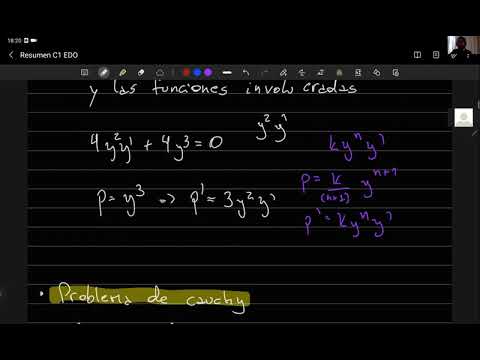 18:20
Resumen C1 EDO
y las funciones involucradas
4y²y' + 4y³ = 0
y²y'
kyⁿy'
p = y³ => p' = 3y²y'
p = k/(n+1) yⁿ⁺¹
p' = kyⁿy'
• Problema de cauchy